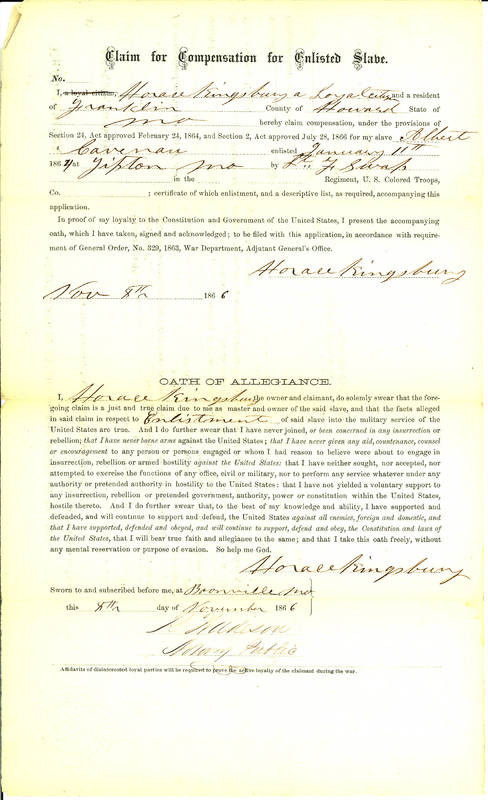 Claim for Compensation for Enlisted Slave.
No.
I, a loyal citizen, Horace Kingsbury a Loyal citizen and a resident
of Franklin County of Howard State of
Mo hereby claim compensation, under the provisions of
Section 24, Act approved February 24, 1864, and Section 2, Act approved July 28, 1866 for my slave Albert
Cavenau enlisted January 11th
1864 at Tipton Mo by
in the Regiment, U. S. Colored Troops,
Co. ; certificate of which enlistment, and a descriptive list, as required, accompanying this
application.
In proof of my loyalty to the Constitution and Government of the United States, I present the accompanying
oath, which I have taken, signed and acknowledged; to be filed with this application, in accordance with require-
ment of General Order, No. 329, 1863, War Department, Adjutant General's Office.
Horace Kingsbury
Nov 8th 1866
OATH OF ALLEGIANCE.
I, Horace Kingsbury the owner and claimant, do solemnly swear that the fore-
going claim is a just and true claim due to me as master and owner of the said slave, and that the facts alleged
in said claim in respect to Enlistment of said slave into the military service of the
United States are true. And I do further swear that I have never joined, or been concerned in any insurrection or
rebellion; that I have never borne arms against the United States; that I have never given any aid, countenance, counsel
or encouragement to any person or persons engaged or whom I had reason to believe were about to engage in
insurrection, rebellion or armed hostility against the United States: that I have neither sought, nor accepted,
nor attempted to exercise the functions of any office, civil or military, nor to perform any service whatever under any
authority or pretended authority in hostility to the United States: that I have not yielded a voluntary support to
any insurrection, rebellion or pretended government, authority, power or constitution within the United States,
hostile thereto. And I do further swear that, to the best of my knowledge and ability, I have supported and
defended, and will continue to support and defend, the United States against all enemies, foreign and domestic, and
that I have supported, defended and obeyed, and will continue to support, defend and obey, the Constitution and laws of
the United States, that I will bear true faith and allegiance to the same; and that I take this oath freely, without
any mental reservation or purpose of evasion. So help me God.
Horace Kingsbury
Sworn to and subscribed before me, at Boonville Mo
this 8th day of November 1866
Notary Public
Affidavits of disinterested loyal parties will be required to prove the active loyalty of the claimant during the war.